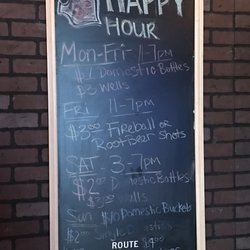 HAPPY
HOUR
Mon-Fri 11-7pm
$2 Domestic Bottles
$3 Wells
Fri 11-7pm
$3.00 Fireball or
RootBeer Shots
SAT 3-7pm
$2.00 D estic Bottles
Wells
Sun $10 Domestic Buckets
$2.00
ROUTE $4.00